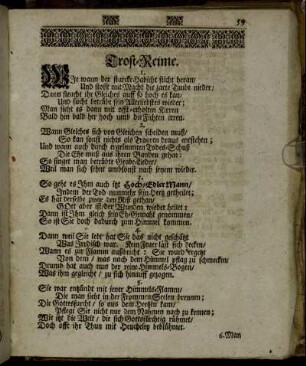 59
Trost-Reime.
1.
Wie wann der starcke Habicht sticht herab/
Und stosst mit Macht die zarte Taube nieder;
Dann fleucht ihr Gleiches auff so hoch es kan/
Und sucht betrübt sein Allerliebstes wieder;
Man sieht es dann mit offt-erholtem Girren
Bald hin bald her hoch umb die Fichten irren.
2.
Wann Gleiches sich von Gleichen scheiden muß/
So kan sonst nichts als Trauren draus entstehen;
Und wann auch durch eygensinnen Todes-Schluß
Die Ehe muß aus ihren Banden gehen:
So singet man betrübte Grabe-Lieder/
Weil man sich sehnt umbsonst nach jenem wieder.
3.
So geht es Ihm auch itzt Hoch-Edler Mann/
Indem der Tod nunmehr sein Hertz getheilt;
Es hat derselbe zwar den Riß gethan/
Gott aber ist der Wunden wieder heilet:
Dann ist Ihm gleich sein Eh-Gemahl genommen/
So ist Sie doch dadurch zum Himmel kommen.
4.
Dann weil Sie lebt hat Sie das nicht geschätzt
Was Irrdisch war. Kein Feuer läst sich decken/
Wann es zur Flamm auffbricht: Sie ward ergetzt
Von dem/ was nach dem Himmel pflag zu schmecken/
Drumb hat auch nun der reine Himmels-Bogen/
Was ihm gegleicht/ zu sich hinauff gezogen.
5.
Sie war entzündt mit jener Himmels-Flamm/
Die man sieht in der Frommen Seelen brennen;
Die Gottesfurcht/ so aus dem Hertzen kam/
Pflegt Sie nicht nur dem Nahmen nach zu kennen;
Wie itzt die Welt/ die sich Gottsfürchtig rühmet/
Doch offt ihr Thun mit Heucheley beblühmet.
6. Man